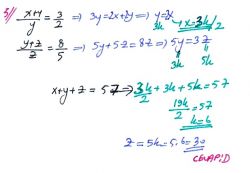 5//
x+y/y = 3/2 ⇒ 3y=2x+2y ⇒ y=2x
3k x=3k/2
y+z/z = 8/5 ⇒ 5y+5z=8z ⇒ 5y=3z
3k 5k
x+y+z = 57 ⇒ 3k/2 + 3k + 5k = 57
19k/2 = 57
k=6
z = 5k = 5.6 = 30
CEVAP:D